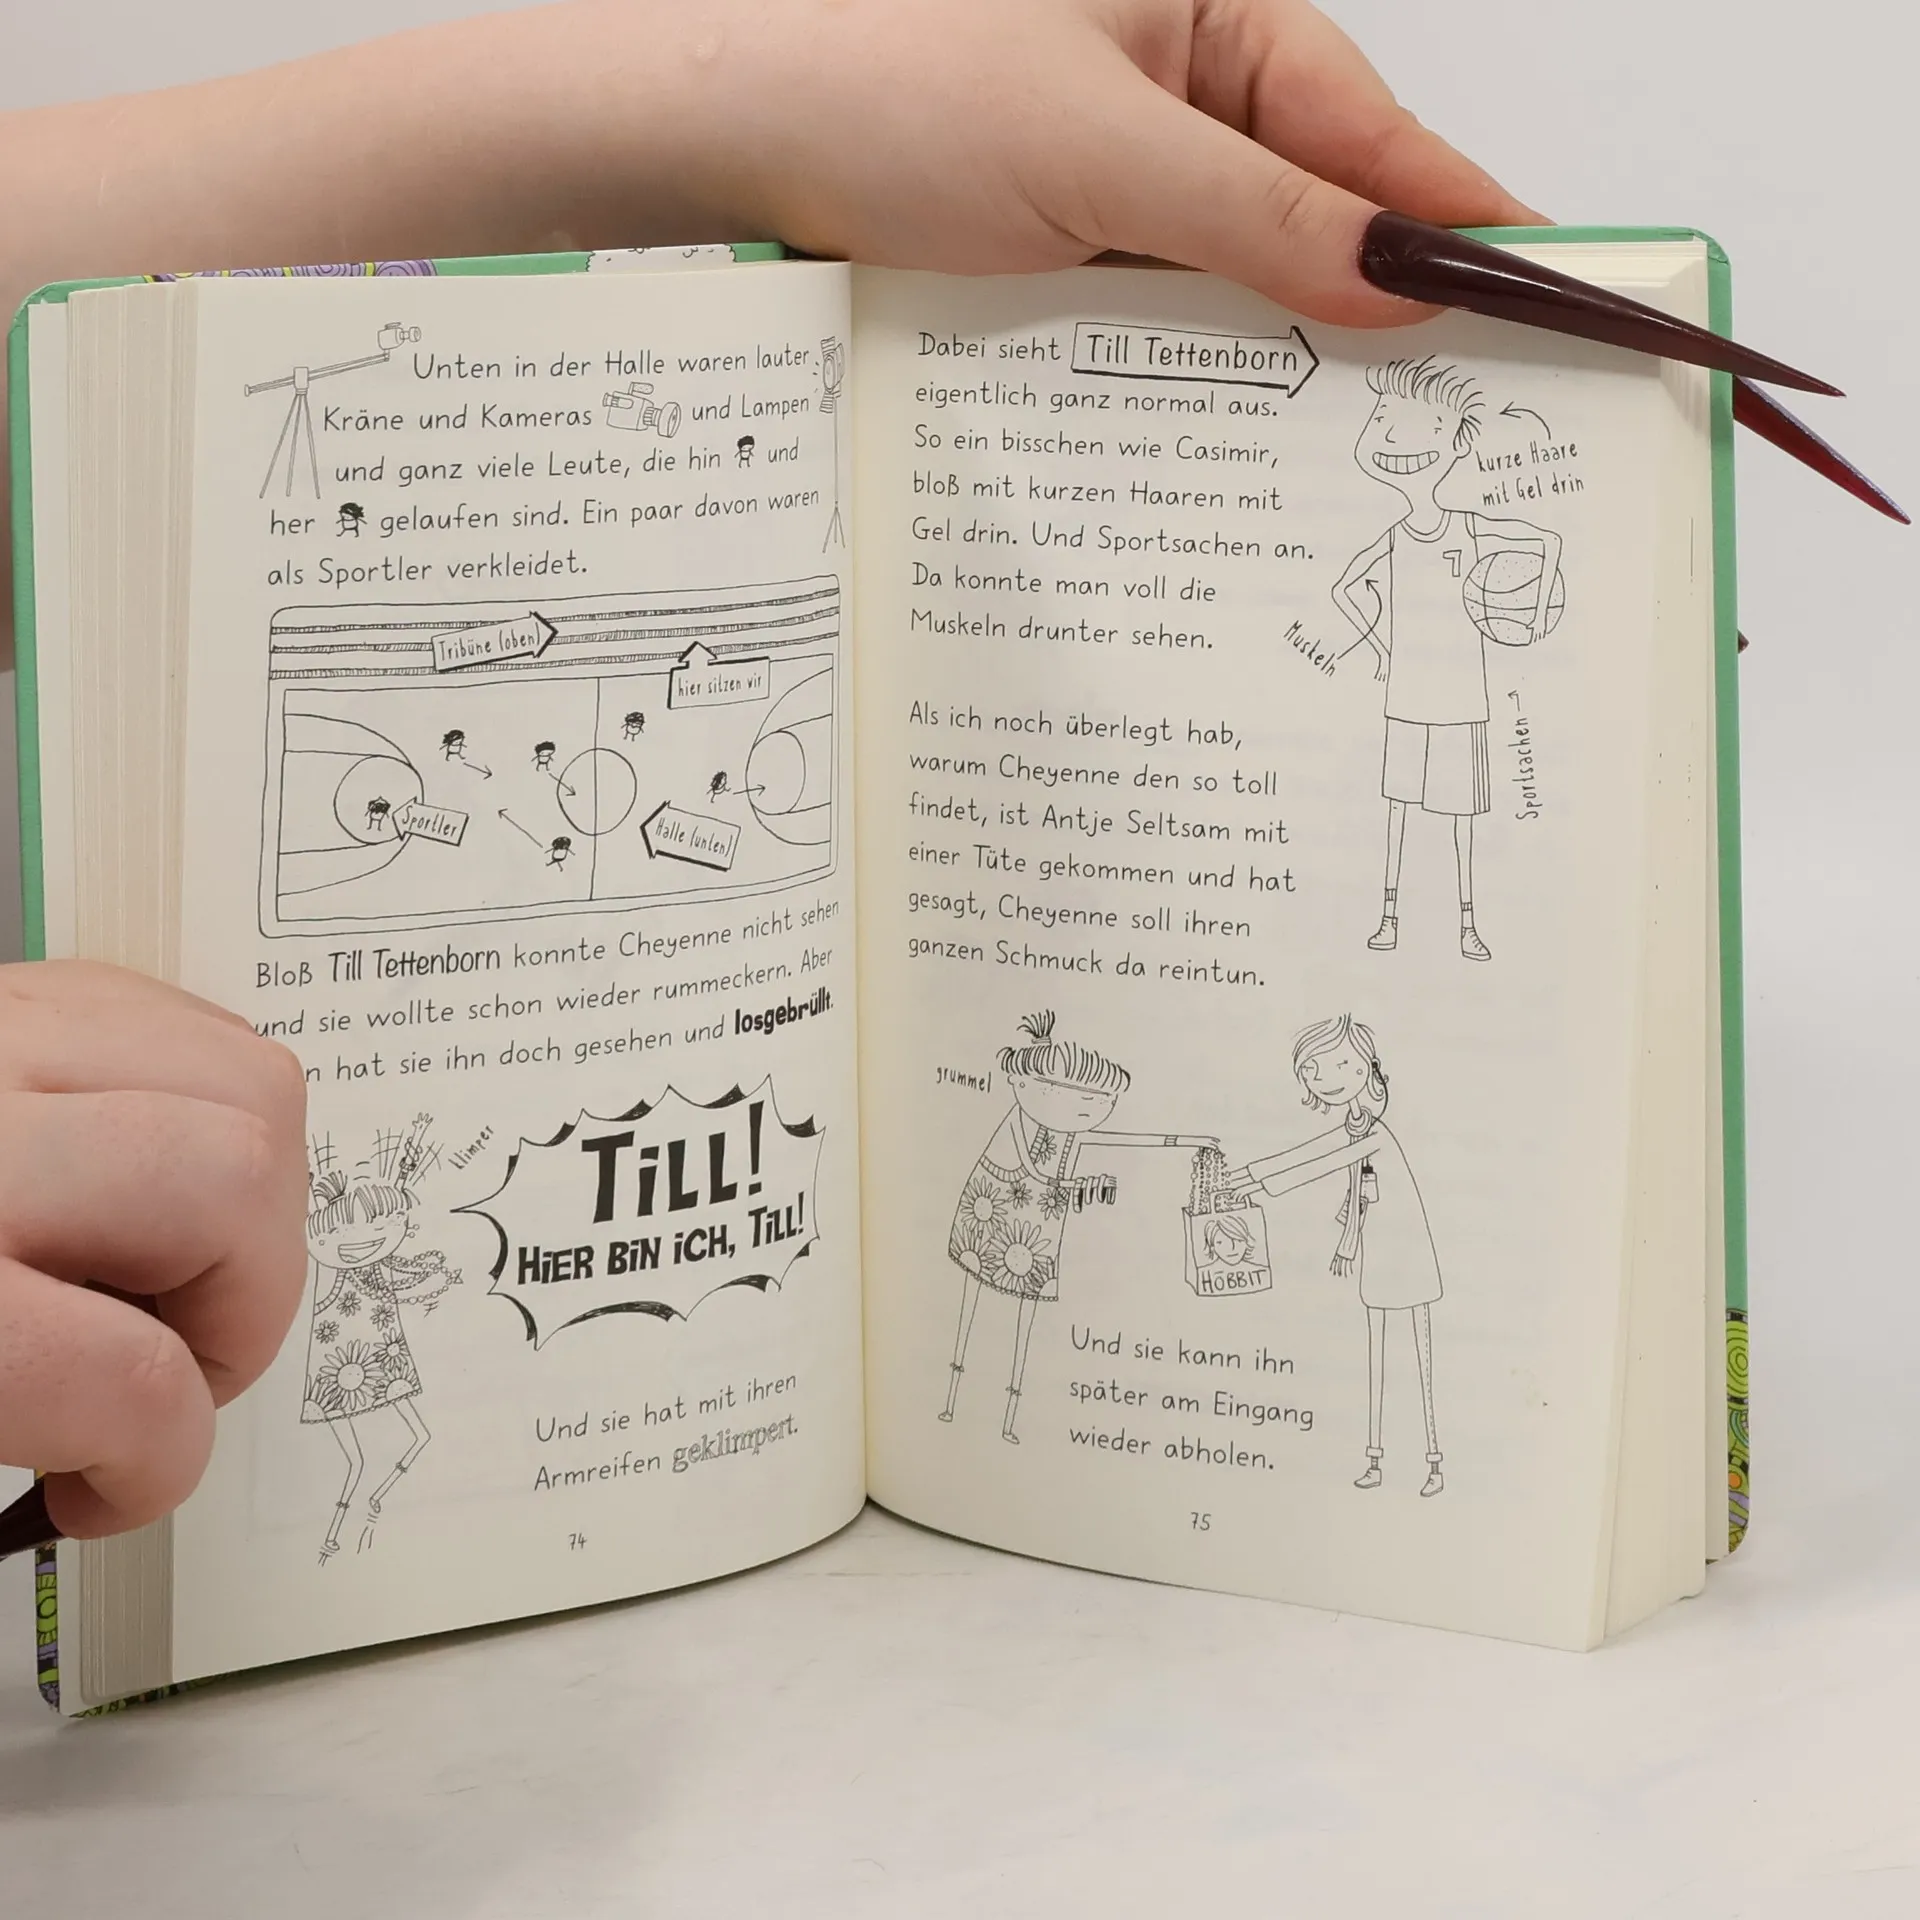 Unten in der Halle waren lauter
Kräne und Kameras und Lampen
und ganz viele Leute, die hin und
her gelaufen sind. Ein paar davon waren
als Sportler verkleidet.
Tribüne (oben)
hier sitzen wir
Sportler
Halle (unten)
Bloß Till Tettenborn konnte Cheyenne nicht sehen
und sie wollte schon wieder rummeckern. Aber
n hat sie ihn doch gesehen und losgebrüllt.
klimper
TiLL!
HiER BiN iCH, TiLL!
Und sie hat mit ihren
Armreifen geklimpert.
74
Dabei sieht Till Tettenborn
eigentlich ganz normal aus.
So ein bisschen wie Casimir,
bloß mit kurzen Haaren mit
Gel drin. Und Sportsachen an.
Da konnte man voll die
Muskeln drunter sehen.
kurze Haare
mit Gel drin
7
Muskeln
Sportsachen
Als ich noch überlegt hab,
warum Cheyenne den so toll
findet, ist Antje Seltsam mit
einer Tüte gekommen und hat
gesagt, Cheyenne soll ihren
ganzen Schmuck da reintun.
grummel
HÖBBIT
Und sie kann ihn
später am Eingang
wieder abholen.
75